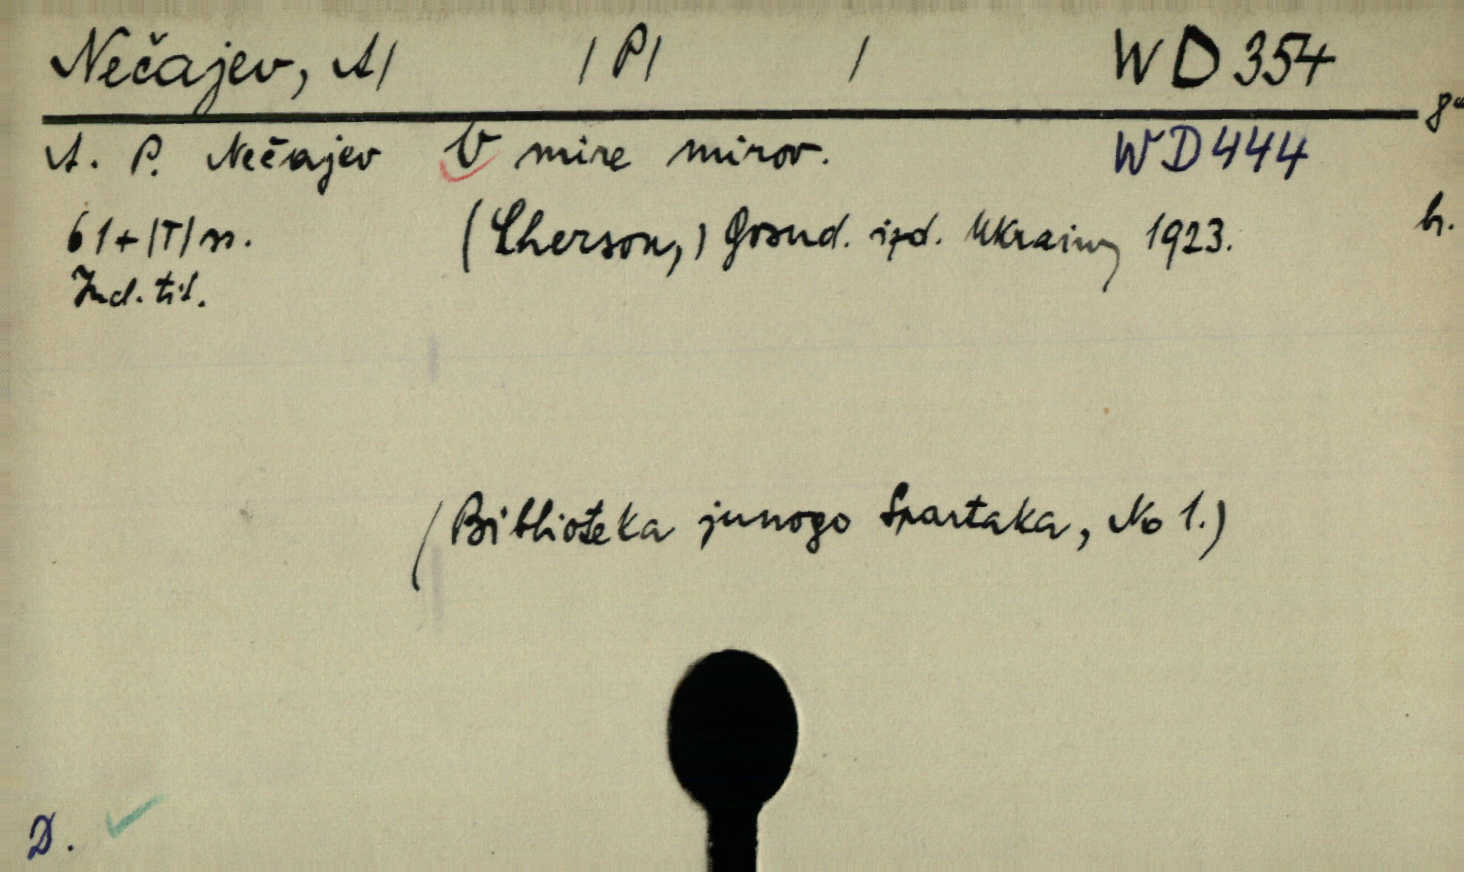 Nečajev, A/ /P/ / WD 354
8°
A. P. Nečajev V mire mirov. WD 444
61+/T/ s. (Cherson,) Gosud. izd. Ukrainy 1923. h.
Ind. tit.
(Biblioteka junogo Spartaka, No 1.)
D.